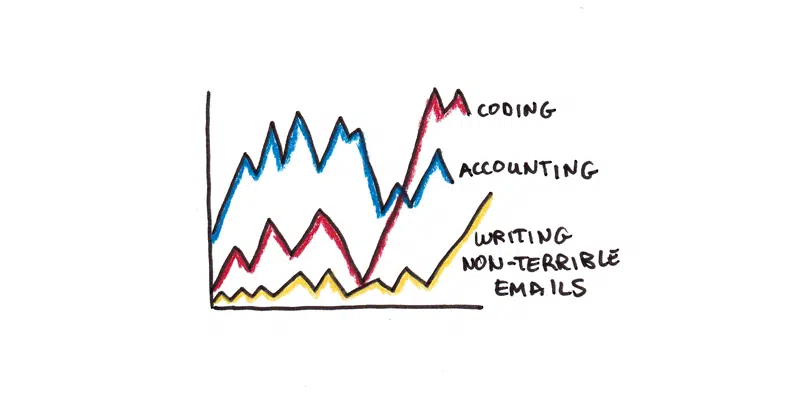 CODING
ACCOUNTING
WRITING
NON-TERRIBLE
EMAILS